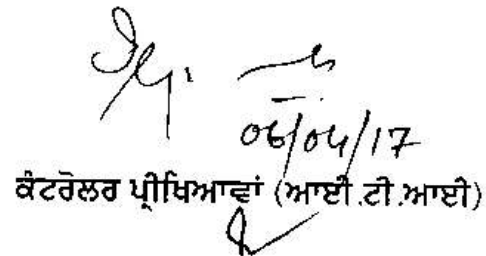 06/04/17
ਕੰਟਰੋਲਰ ਪ੍ਰੀਖਿਆਵਾਂ (ਆਈ.ਟੀ.ਆਈ)